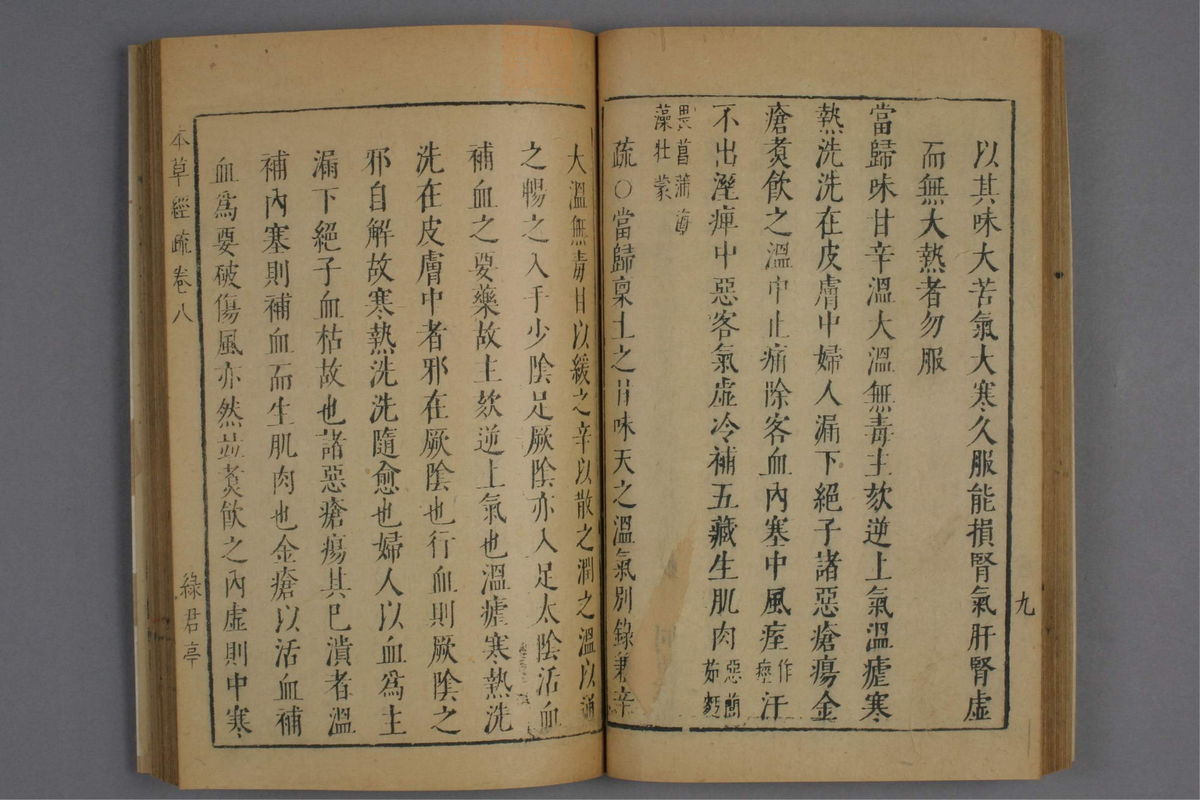 九
以其味大苦氣大寒久服能損腎氣肝腎虛
而無大熱者勿服
當歸味甘辛溫大溫無毒主欬逆上氣溫瘧寒
熱洗洗在皮膚中婦人漏下絕子諸惡瘡瘍金
瘡煑飲之溫中止痛除客血內塞中風痓作痙汗
不出溼痺中惡客氣虛冷補五藏生肌肉惡䕡茹麪
畏菖蒲海
藻牡蒙
疏○當歸稟土之甘味天之溫氣別錄兼辛
大溫無毒甘以緩之辛以散之潤之溫以通
之暢之入手少陰足厥陰亦入足太陰活血
補血之要藥故主欬逆上氣也溫瘧寒熱洗
洗在皮膚中者邪在厥陰也行血則厥陰之
邪自解故寒熱洗洗隨愈也婦人以血爲主
漏下絕子血枯故也諸惡瘡瘍其已潰者溫
補內塞則補血而生肌肉也金瘡以活血補
血爲要破傷風亦然並煑飲之內虛則中寒
本草經疏卷八
綠君亭